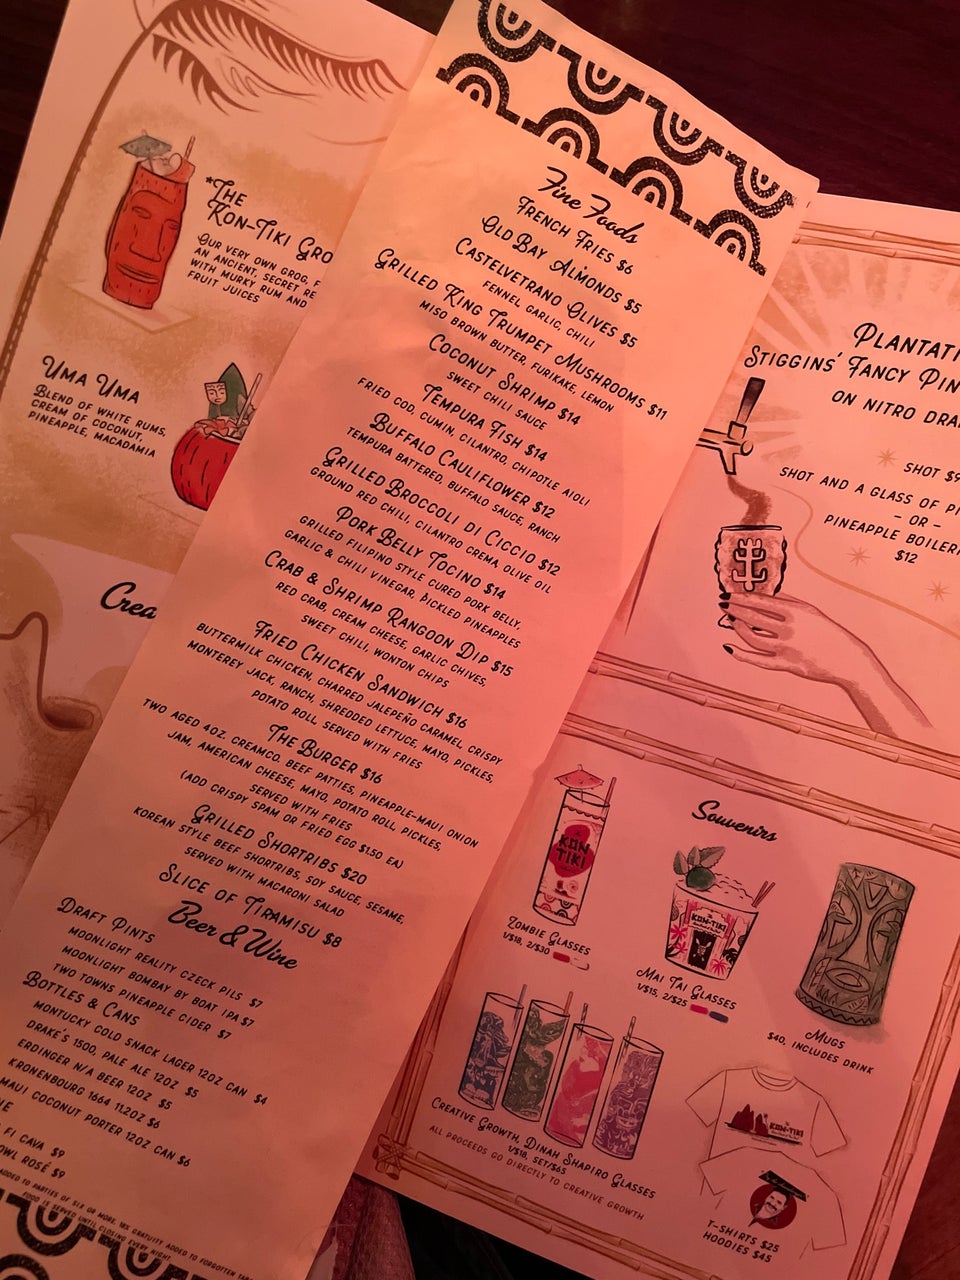 *The
Kon-Tiki Gro
Our very own grog, f
an ancient, secret re
with murky rum and
fruit juices
Uma Uma
Blend of white rums,
cream of coconut,
pineapple, macadamia
Crea
Fine Foods
French Fries $6
Old Bay Almonds $5
Castelvetrano Olives $5
fennel, garlic, chili
Grilled King Trumpet Mushrooms $11
miso brown butter, furikake, lemon
Coconut Shrimp $14
sweet chili sauce
Tempura Fish $14
fried cod, cumin, cilantro, chipotle aioli
Buffalo Cauliflower $12
tempura battered, buffalo sauce, ranch
Grilled Broccoli di Ciccio $12
ground red chili, cilantro crema, olive oil
Pork Belly Tocino $14
grilled filipino style cured pork belly,
garlic & chili vinegar, pickled pineapples
Crab & Shrimp Rangoon Dip $15
red crab, cream cheese, garlic chives,
sweet chili, wonton chips
Fried Chicken Sandwich $16
buttermilk chicken, charred jalepeño caramel, crispy
monterey jack, ranch, shredded lettuce, mayo, pickles,
potato roll, served with fries
The Burger $16
two aged 4oz. creamco. beef patties, pineapple-maui onion
jam, american cheese, mayo, potato roll, pickles,
served with fries
(add crispy spam or fried egg $1.50 ea)
Grilled Shortribs $20
korean style beef shortribs, soy sauce, sesame,
served with macaroni salad
Slice of Tiramisu $8
Beer & Wine
Draft Pints
Moonlight Reality Czeck Pils $7
Moonlight Bombay by Boat IPA $7
Two Towns Pineapple Cider $7
Bottles & Cans
Montucky Cold Snack Lager 12oz can $4
Drake's 1500, Pale Ale 12oz $5
Erdinger N/A Beer 12oz $5
Kronenbourg 1664 11.2oz $6
Maui Coconut Porter 12oz can $6
Fi Cava $9
owl Rosé $9
added to parties of six or more. 18% gratuity added to forgotten tab
Food is served until closing every night.
Plantati
Stiggins' Fancy Pin
on nitro dra
Shot $9
Shot and a glass of p
- or -
Pineapple Boiler
$12
Souvenirs
Kon
Tiki
Zombie Glasses
1/$18, 2/$30
Kon-Tiki
Mai Tai Glasses
1/$15, 2/$25
Mugs
$40, includes drink
Creative Growth, Dinah Shapiro Glasses
1/$18, set/$65
All proceeds go directly to Creative Growth
Kon-Tiki
T-Shirts $25
Hoodies $45